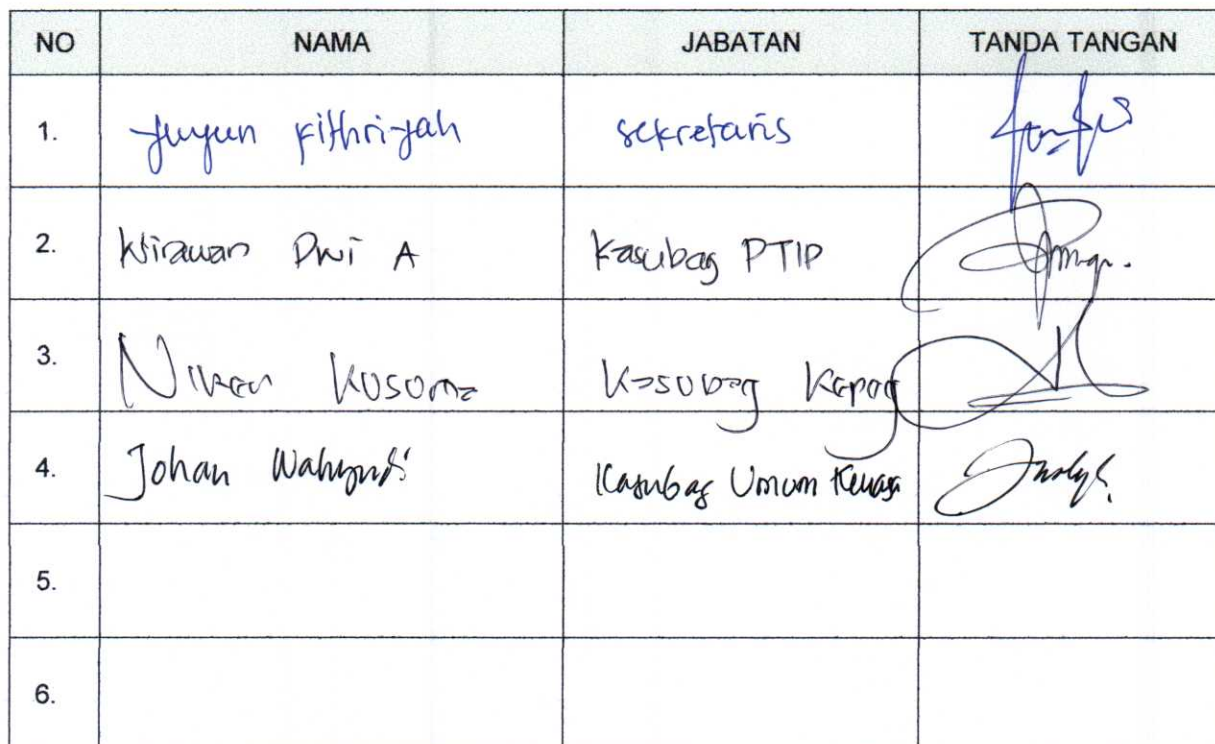 NO NAMA JABATAN TANDA TANGAN
1. Yuyun Fithriyah Sekretaris
2. Wirawan Dwi A Kasubag PTIP
3. Niken Kusuma Kasubag Kepeg
4. Johan Wahyudi Kasubag Umum Keuaga
5.
6.